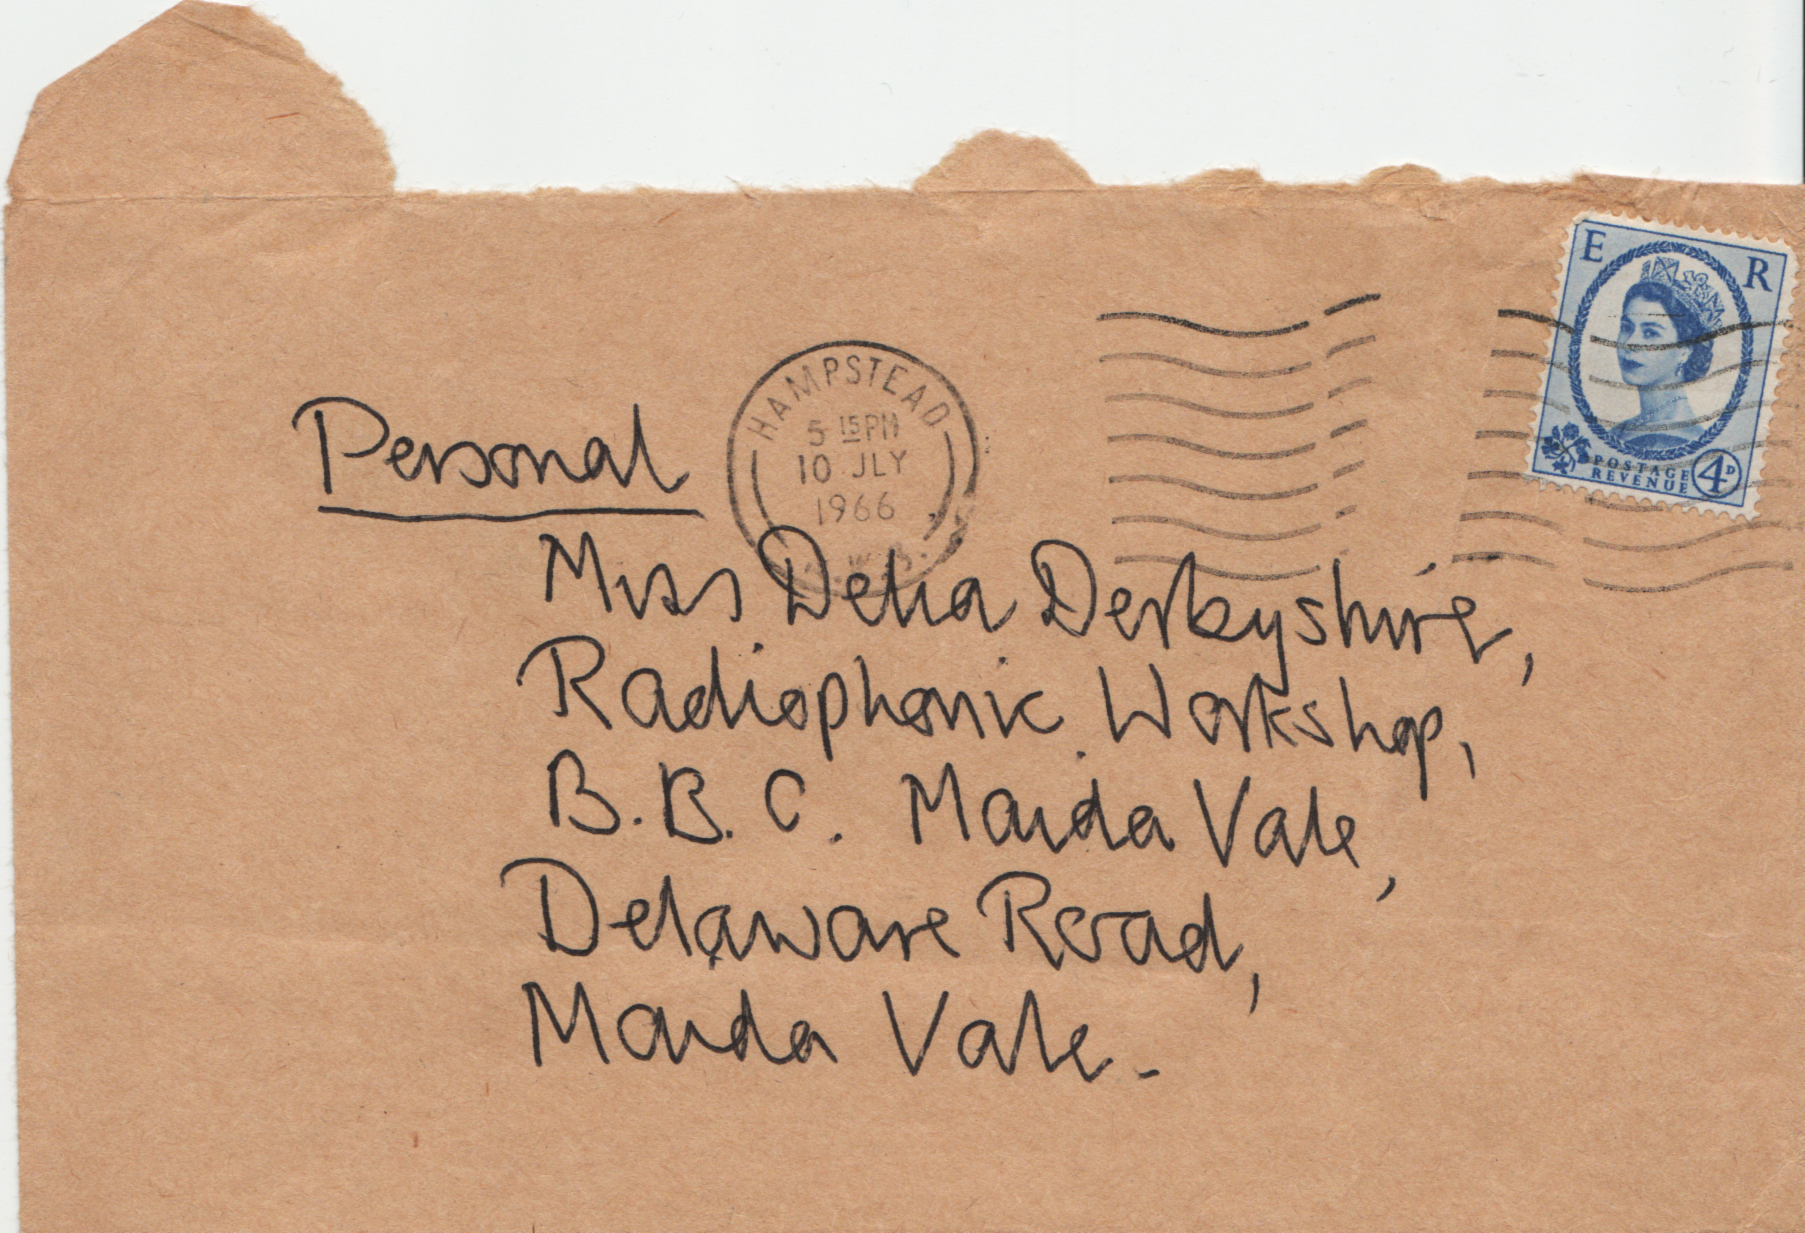 E R
POSTAGE
REVENUE
4D
HAMPSTEAD
5 15 PM
10 JLY
1966
Personal
Miss Delia Derbyshire,
Radiophonic Workshop,
B.B.C. Maida Vale,
Delaware Road,
Maida Vale.